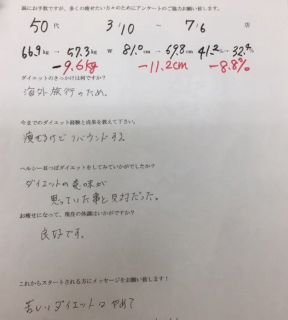 誠にお手数ですが、多くの痩せたい方々のためにアンケートのご協力お願い致します。
50代 3/10 ～ 7/6 店
66.9kg → 57.3kg W 81.0cm → 69.8cm 41.2% → 32.4%
-9.6kg -11.2cm -8.8%
ダイエットのきっかけは何ですか？
海外旅行のため。
今までのダイエット経験と成果を教えて下さい。
痩せるけどリバウンドする
ヘルシー耳つぼダイエットをしてみていかがでしたか？
ダイエットの意味が
思っていた事と反対だった。
お痩せになって、現在の体調はいかがですか？
良好です。
これからスタートされる方にメッセージをお願い致します！
苦しいダイエットはやめて